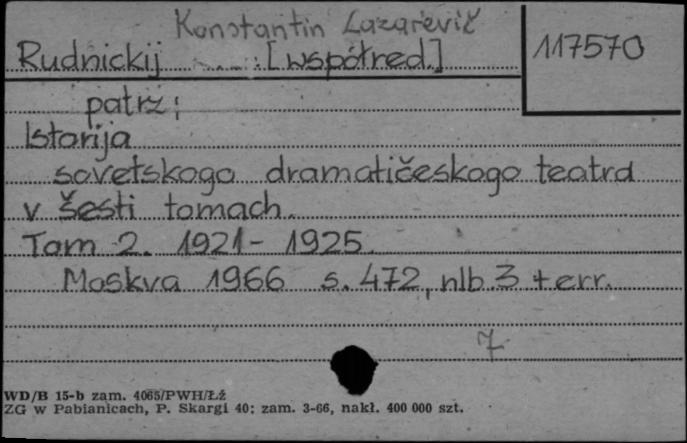 Konstantin Lazarevič
Rudnickij [współred.]
117570
patrz:
Istorija
sovetskogo dramatičeskogo teatra
v šesti tomach.
Tom 2. 1921-1925.
Moskva 1966 s. 472, nlb. 3 + err.
7
WD/B 15-b zam. 4065/PWH/ŁŻ
ZG w Pabianicach, P. Skargi 40; zam. 3-66, nakł. 400 000 szt.